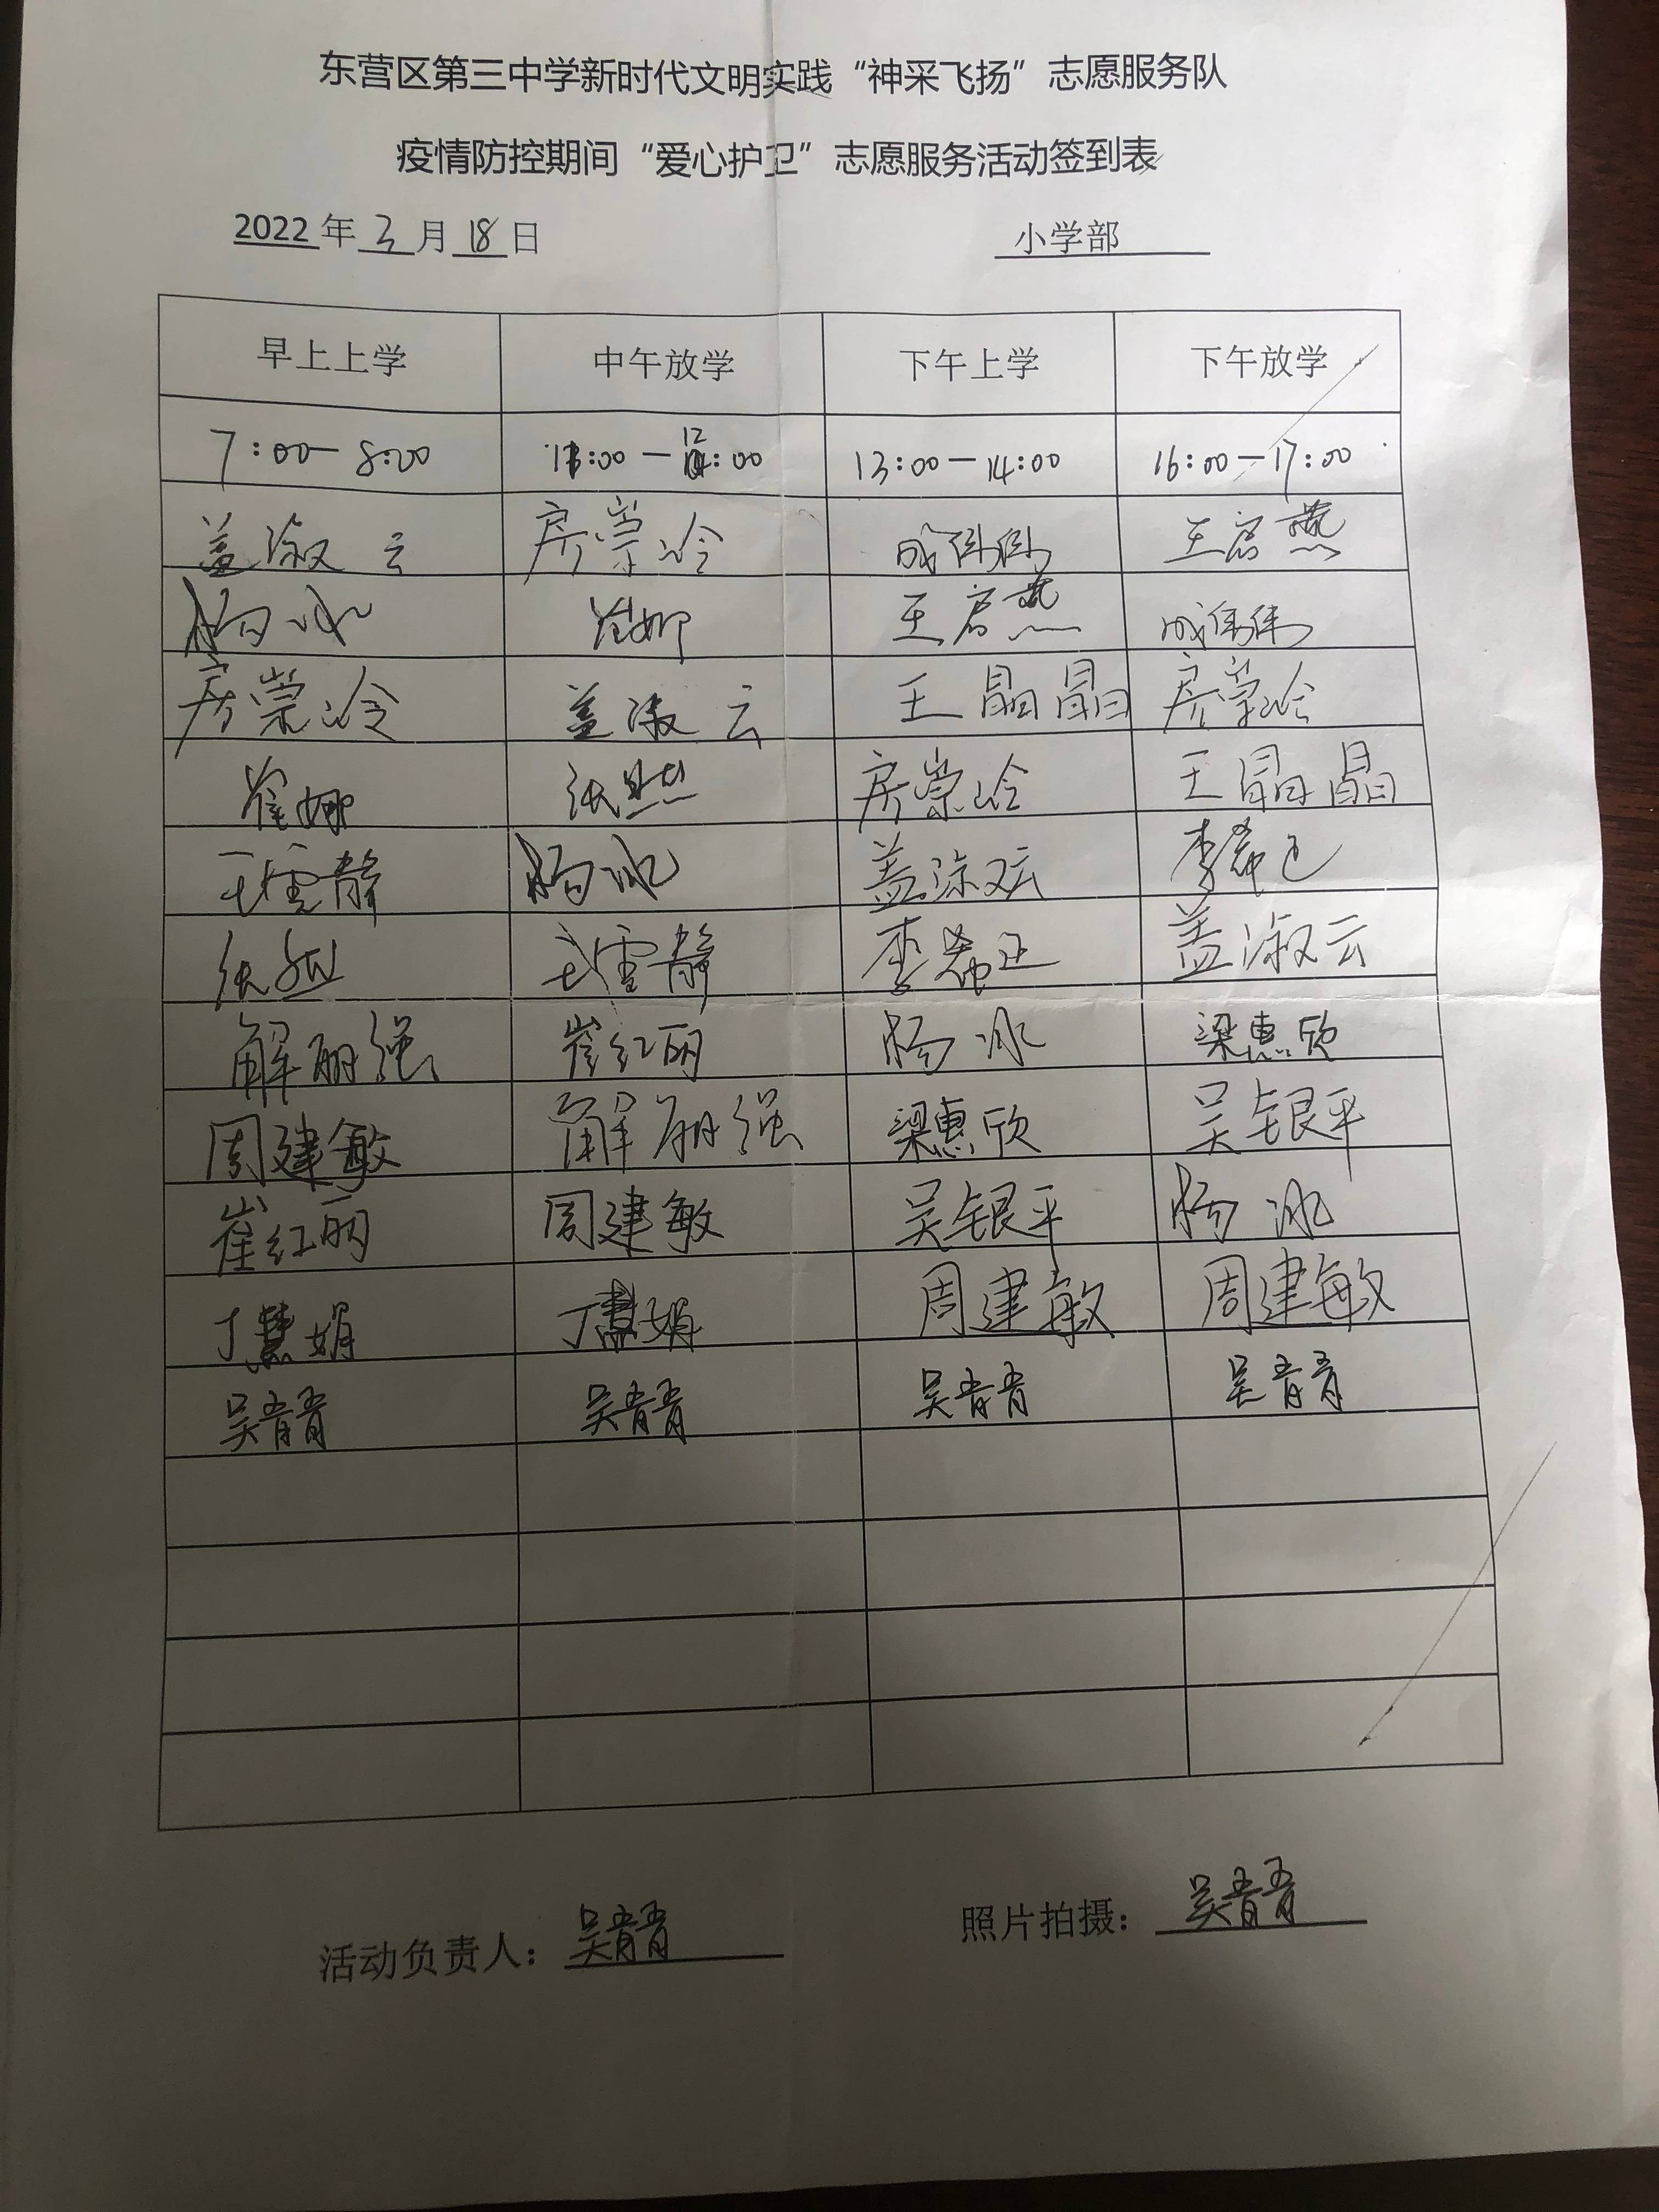 东营区第三中学新时代文明实践“神采飞扬”志愿服务队
疫情防控期间“爱心护卫”志愿服务活动签到表
2022年3月18日 小学部
早上上学 中午放学 下午上学 下午放学
7:00—8:00 11:00—12:00 13:00—14:00 16:00—17:00
盖淑云 房崇冷 成伟伟 王启燕
杨冰 崔娜 王启燕 成伟伟
房崇冷 盖淑云 王晶晶 房崇冷
崔娜 张然 房崇冷 王晶晶
王雪静 杨冰 盖淑云 李希正
张然 王雪静 李希正 盖淑云
解丽强 崔红丽 杨冰 梁惠欣
周建敏 解丽强 梁惠欣 吴银平
崔红丽 周建敏 吴银平 杨冰
丁慧娟 丁慧娟 周建敏 周建敏
吴青青 吴青青 吴青青 吴青青
活动负责人：吴青青 照片拍摄：吴青青